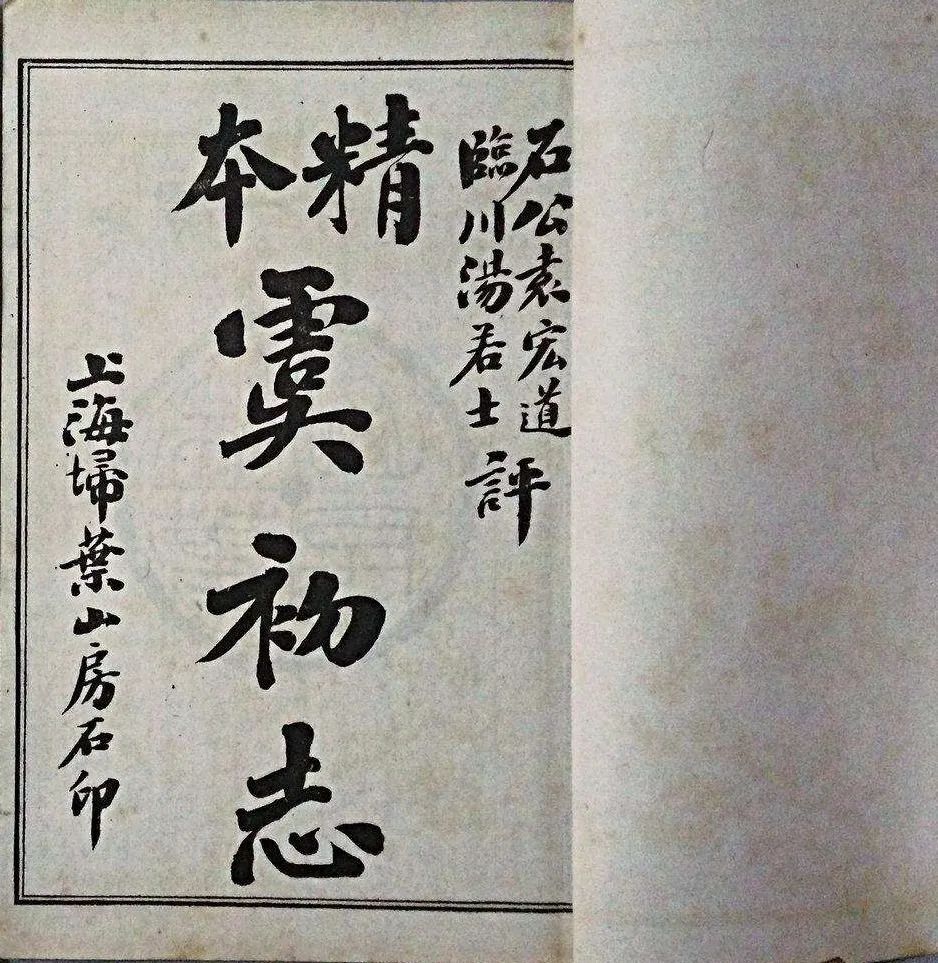 石公袁宏道
臨川湯若士評
精本
虞初志
上海埽葉山房石印